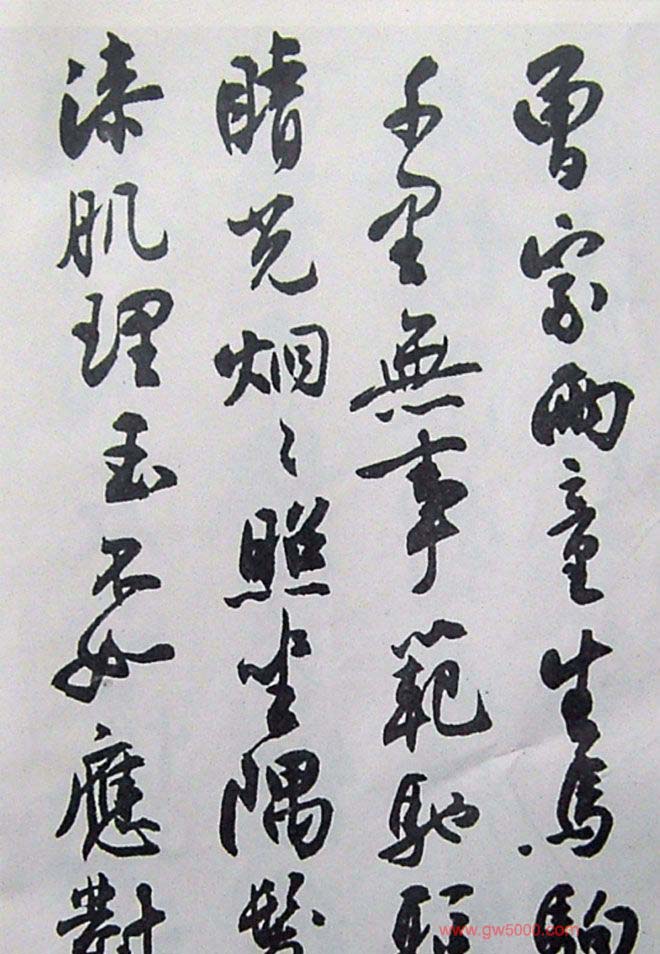 曾家兩童生馬駒
千里無事範馳驅
睛光炯々照坐隅髮
漆肌理玉不如應對
www.gw5000.com